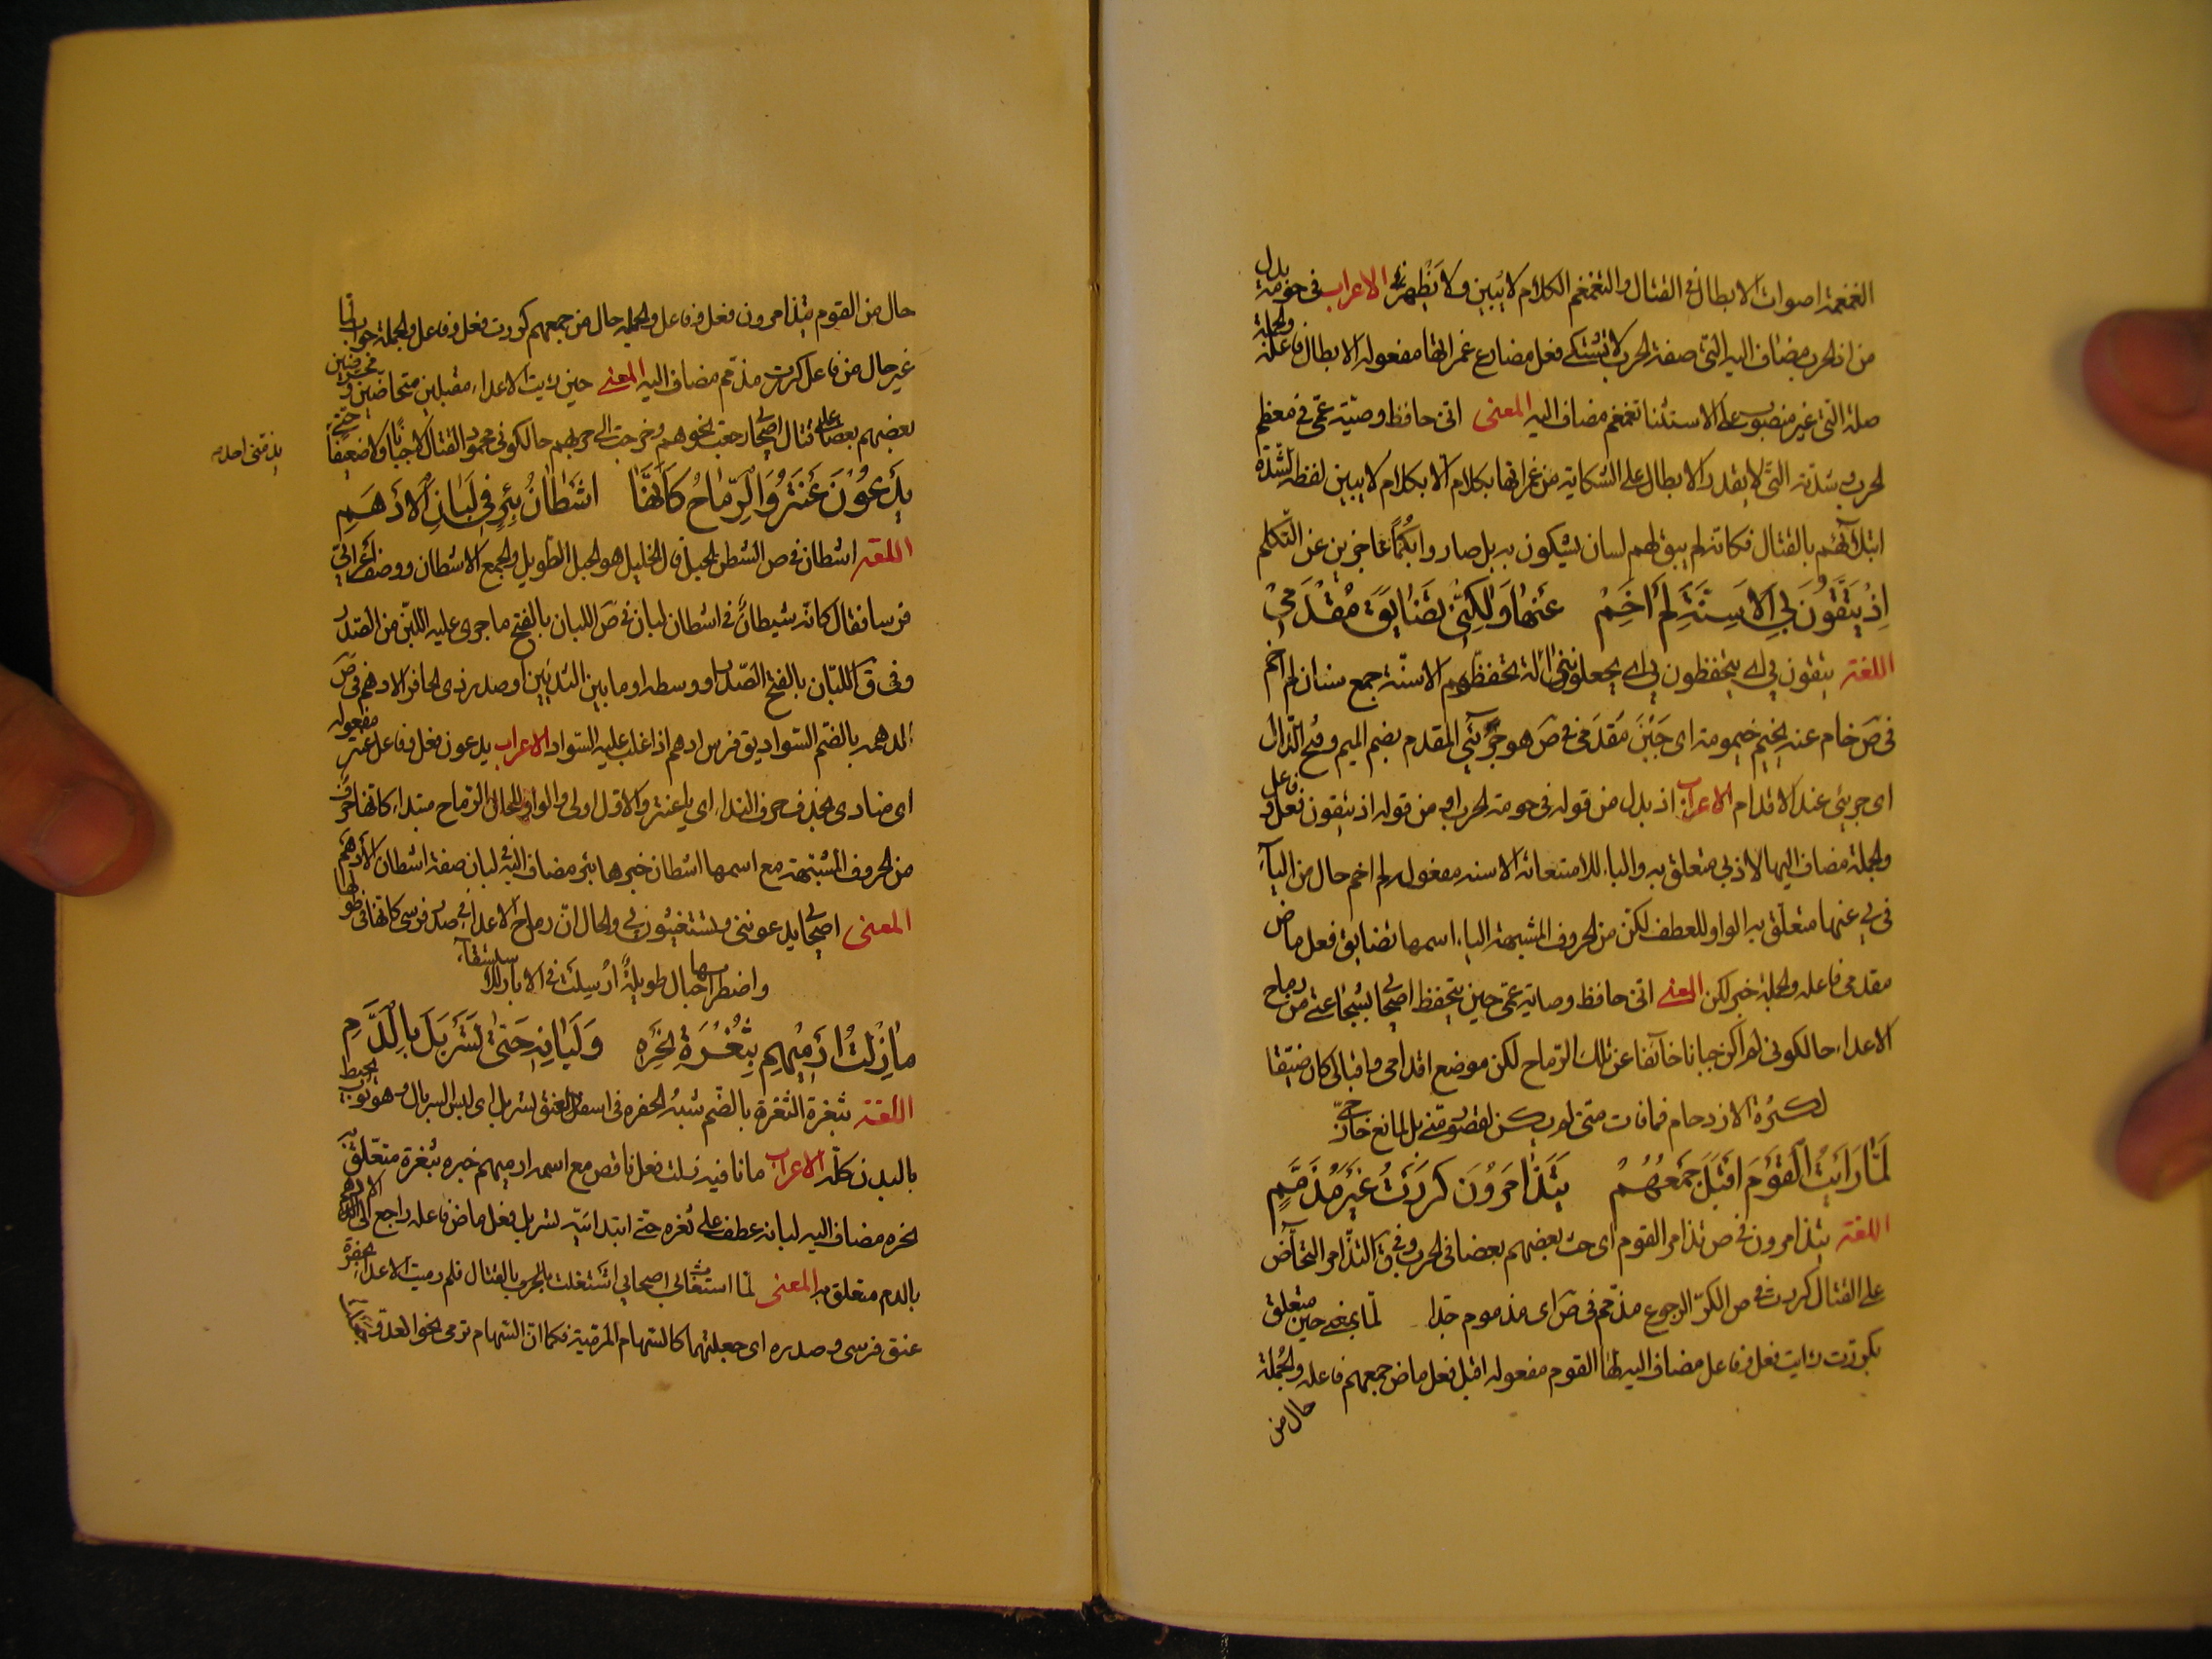 الغمغمة اصوات الابطال فى القتال والتغمغم الكلام لا يبين ولا يظهر الاعراب فى حومة بدل
من اذ الحرب مضاف اليه التى صفة الحرب لا تشتكى فعل مضارع غمراتها مفعوله الابطال فاعله والجملة
صلة التى غير منصوب على الاستثنا تغمغم مضاف اليه المعنى انى حافظ وصيّة عمّى فى معظم
الحرب وشدّته التى لا يقدر الابطال على الشكاية من غمراتها بكلام الا بكلام لا يبين لفظه لشدّة
ابتلائهم بالقتال فكانه لم يبق لهم لسان يشكون به بل صاروا بُكمًا عاجزين عن التكلم
اِذْ يَتَّقُونَ بِيَ الْاَسِنَّةَ لَمْ اَخِمْ عَنْهَا وَلٰكِنّى تَضَايَقَ مُقْدَمِى
اللغة يتقون بى اى يتحفظون بى اى يجعلوننى الة تحفظهم الاسنّة جمع سنان لم اخم
فى ص خام عنه يخيم خيمومة اى جَبُنَ مَقدَمى فى ص هو جرئ المقدم بضم الميم وفتح الدّال
اى جرئ عند الاقدام الاعراب اذ بدل من قوله فى حومة الحرب او من قوله اذ يتقون فعل وفاعل
والجملة مضاف اليها لاذ بى متعلق به والباء للاستعانة الاسنه مفعوله لم اخم حال من الياء
فى بى عنها متعلّق به الواو للعطف لكن من الحروف المشبهة الياء اسمها تضايق فعل ماض
مقدمى فاعله والجملة خبر لكن المعنى انى حافظ وصاية عمّى حين يتحفظ اصحابى بشجاعتى من رماح
الاعداء حالكونى لم اكن جبانا خائفا عن تلك الرماح لكن موضع اقدامى واقبالى كان ضيّقا
لكثرة الازدحام فمافات منّى لم يكن لقصور منّى بل لمانع خارجى
لَمَّا رَاَيْتُ الْقَوْمَ اَقْبَلَ جَمْعُهُمْ يَتَذَامَرُونَ كَرَرْتُ غَيْرَ مُذَمَّمِ
اللغة يتذامرون فى ص تذامر القوم اى حث بعضهم بعضا فى الحرب وفى ق التذامر التحاضّ
على القتال كررت فى ص الكرّ الرجوع مذمّم فى ص اى مذموم جدا لمّا بمعنى حين متعلق
بكررت رايت فعل وفاعل مضاف اليه لها القوم مفعوله اقبل فعل ماض جمعهم فاعله والجملة
حال من
حال من القوم يتذامرون فعل وفاعل والجملة حال من جمعهم كررت فعل وفاعل والجملة جواب لمّا
غير حال من فاعل كررت مذمّم مضاف اليه المعنى حين رايت الاعداء مقبلين متحاضين ومحرضين
بعضهم بعضا على قتال اصحابى رجعت نحوهم وخرجت الى حربهم حالكونى محمود القتال لا جبانا ولا ضعيفا حتّى
يذمّنى احد
يَدْعُوْنَ عَنْتَرُ وَالرِّمَاحُ كَاَنَّهَا اَشْطَانُ بِئْرٍ فِى لَبَانِ الْاَدْهَمِ
اللغة اشطان فى ص الشطن الحبل قال الخليل هو الحبل الطويل والجمع الاشطان ووصف اعرابى
فرسا فقال كانه شيطان فى اشطان لبان فى ص اللبان بالفتح ما جرى عليه اللبن من الصّدر
وفى ق اللبان بالفتح الصّدر او وسطه او ما بين الثديين او صدر ذى الحافر الادهم فى ص
الدهمة بالضم السّواد يق فرس ادهم اذا غلب عليه السّواد الاعراب يدعون فعل وفاعل عنتر مفعوله
اى منادى بحذف حرف النداء اى يا عنتر والاوّل اولى والواو للحال الرّماح مبتداء كانها حرف
من الحروف المشبّهة مع اسمها اشطان خبرها بئر مضاف اليه فى لبان صفة اشطان الأدهم
المعنى اصحابى يدعوننى ويستغيثون بى والحال انّ رماح الاعداء فى صدر فرسى كانّها فى طولها
واضطرابها حبال طويلة اُرسِلَت فى الابار للاستقاء
مَازِلْتُ اَرْمِيهِمِ بِثُغْرَةِ نَحْرِهِ وَلَبَانِهِ حَتّٰى تَسَرْبَلَ بِالدَّمِ
اللغة ثغرة الثغرة بالضّم شبه الحفره فى اسفل العنق تسربل اى لبس السربال وهو ثوب يحيط
بالبدن كلّه الاعراب ما نافيه زلت فعل ناقص مع اسمه ارميهم خبره بثغرة متعلّق به
نحره مضاف اليه لبانه عطف على ثغره حتى ابتدائيّه تسربل فعل ماض فاعله راجع الى الادهم
بالدم متعلق به المعنى لمّا استغاث بى اصحابى اشتغلت بالحرب بالقتال فلم رميت الاعداء بحفرة
عنق فرسى وصدره اى جعلتهما كالسّهام المرميّة فكما انّ السّهام ترمى نحو العدو